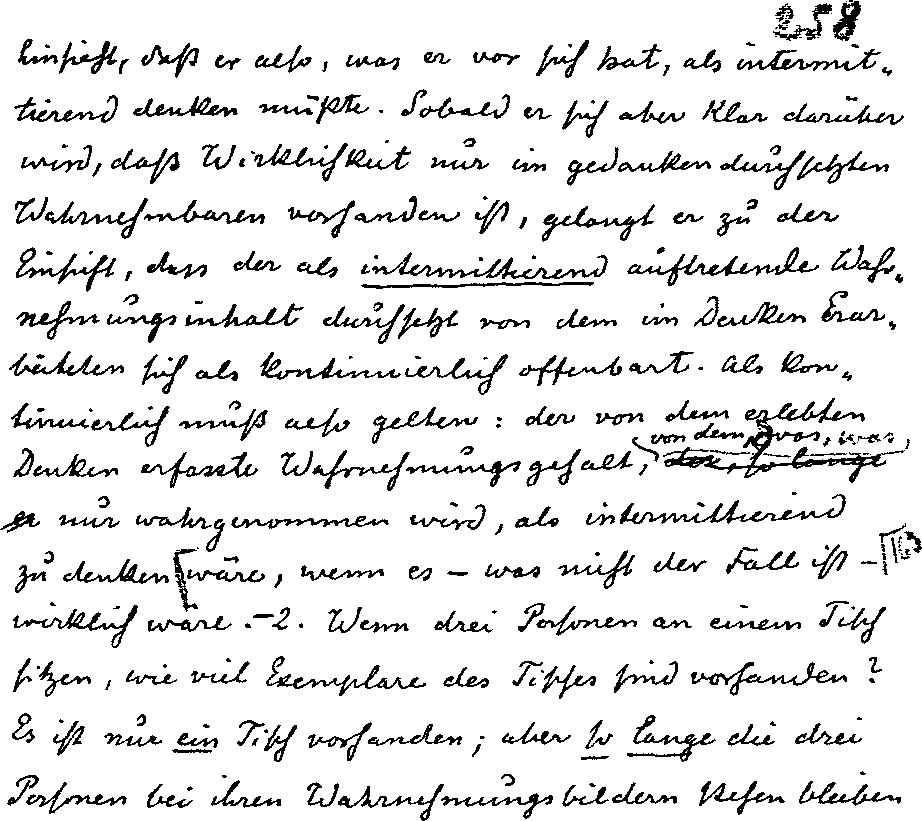 258
Einsieht, daß er also, was er vor sich hat, als intermit-
tierend denken müßte. Sobald er sich aber klar darüber
wird, daß Wirklichkeit nur im gedankendurchsetzten
Wahrnehmbaren vorhanden ist, gelangt er zu der
Einsicht, dass der als intermittierend auftretende Wahr-
nehmungsinhalt durchsetzt von dem im Denken Erar-
beiteten sich als kontinuierlich offenbart. Als kon-
tinuierlich muß also gelten: der von dem erlebten
von dem, was, was
Denken erfasste Wahrnehmungsgehalt, der, so lange
er nur wahrgenommen wird, als intermittierend
zu denken wäre, wenn es – was nicht der Fall ist –
wirklich wäre. – 2. Wenn drei Personen an einem Tisch
sitzen, wie viel Exemplare des Tisches sind vorhanden?
Es ist nur ein Tisch vorhanden; aber so lange die drei
Personen bei ihren Wahrnehmungsbildern stehen bleiben